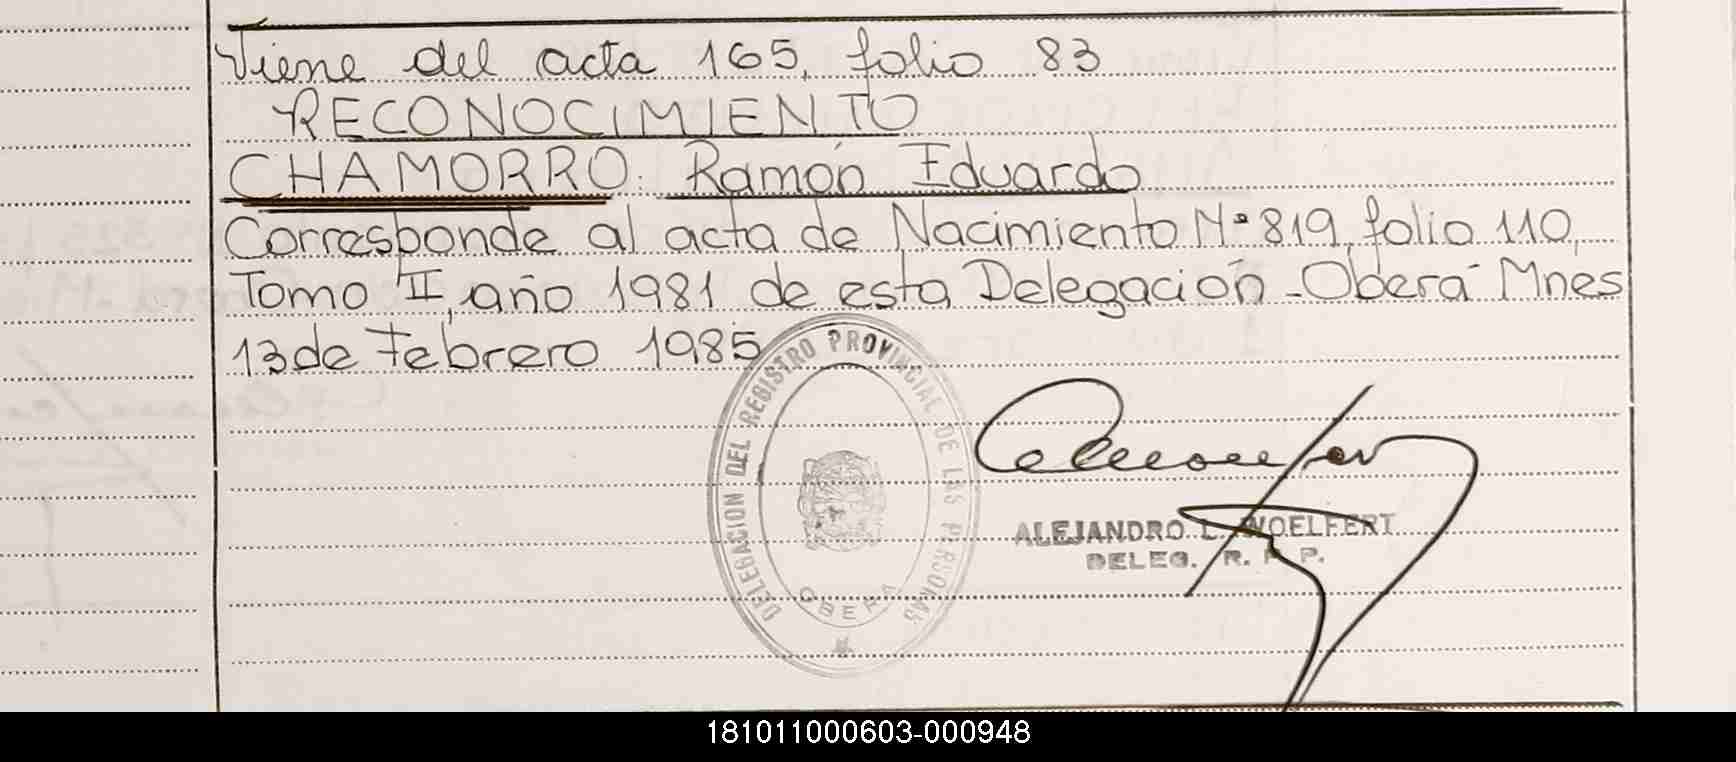 Viene del acta 165, folio 83
RECONOCIMIENTO
CHAMORRO: Ramón Eduardo
Corresponde al acta de Nacimiento Nº 819, folio 110,
Tomo II, año 1981 de esta Delegación - Oberá - Mnes
13 de Febrero 1985
DELEGACION DEL REGISTRO PROVINCIAL DE LAS PERSONAS
OBERA
ALEJANDRO L. WOELFERT
DELEG. R. P. P.
181011000603-000948